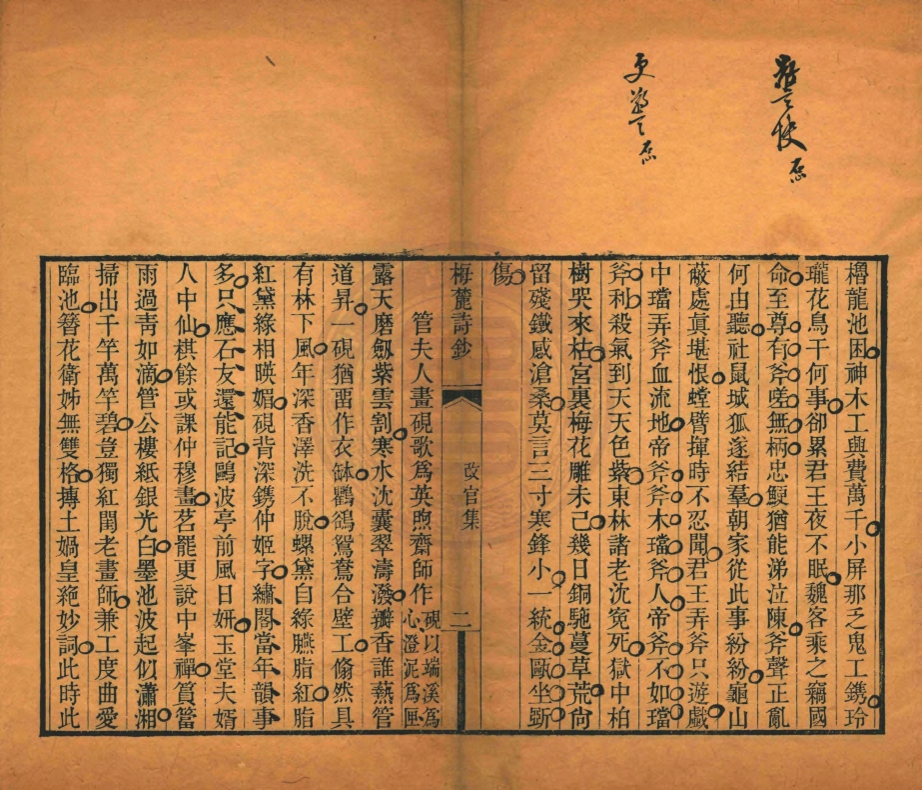 櫓龍池困神木工興費萬千小屏那乏鬼工鐫玲
瓏花鳥干何事卻累君王夜不眠魏客乘之竊國
命至尊有斧嗟無柄忠鯁猶能涕泣陳斧聲正亂
何由聽社鼠城狐遂結羣朝家從此事紛紛龜山
蔽處眞堪恨螳臂揮時不忍聞君王弄斧只遊戲
中璫弄斧血流地帝斧斧木璫斧人帝斧不如璫
斧利殺氣到天天色紫東林諸老沈寃死獄中柏
樹哭來枯宮裏梅花雕未已幾日銅駞蔓草荒尙
留殘鐵感滄桑莫言三寸寒鋒小一統金甌坐斲
傷
梅麓詩鈔
改官集
二
管夫人畫硯歌爲英煦齋師作
硯以端溪爲
心澄泥爲匣
露天磨劔紫雲割寒水沈囊翠濤潑瓣香誰爇管
道昇一硯猶畱作衣缽鸜鵒鴛鴦合壁工翛然具
有林下風年深香澤洗不脫螺黛自綠臙脂紅脂
紅黛綠相暎媚硯背深鐫仲姬字繡閣當年韻事
多只應石友還能記鷗波亭前風日妍玉堂夫婿
人中仙棋餘或課仲穆畫茗罷更說中峯禪篔簹
雨過靑如滴管公樓紙銀光白墨池波起似瀟湘
掃出千竿萬竿碧豈獨紅閨老畫師兼工度曲愛
臨池簪花衛姊無雙格摶土媧皇絕妙詞此時此